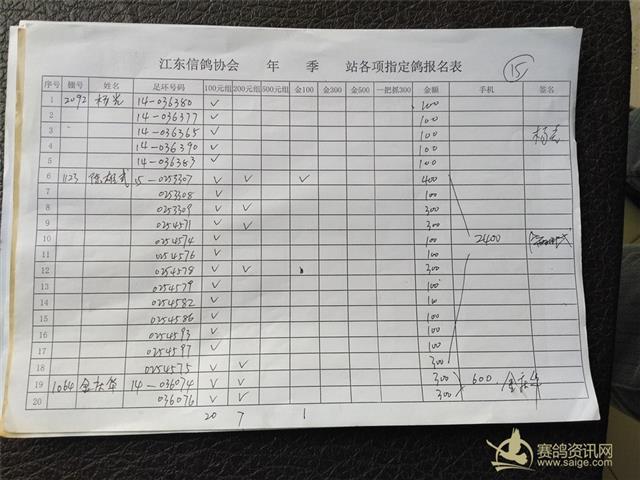 江东信鸽协会 年 季 站各项指定鸽报名表
15
序号 棚号 姓名 足环号码 100元组 200元组 500元组 金100 金300 金500 一把抓300 金额 手机 签名
1 2092 杨光 14-036380 ✓ 100
2 14-036377 ✓ 100
3 14-036365 ✓ 100 杨光
4 14-036390 ✓ 100
5 14-036383 ✓ 100
6 1123 陈雄武 15-0253307 ✓ ✓ ✓ 400
7 0253308 ✓ 100
8 0253309 ✓ ✓ 300
9 0254571 ✓ ✓ 300
10 0254574 ✓ 100 2400
11 0254576 ✓ 100
12 0254578 ✓ ✓ 300
13 0254579 ✓ 100
14 0254582 ✓ 100
15 0254586 ✓ 100
16 0254593 ✓ 100
17 0254597 ✓ 100
18 0254575 ✓ ✓ 300
19 1064 金庆华 14-036074 ✓ ✓ 300 600 金庆华
20 036076 ✓ ✓ 300
20 7 1
赛鸽资讯网
www.saige.com